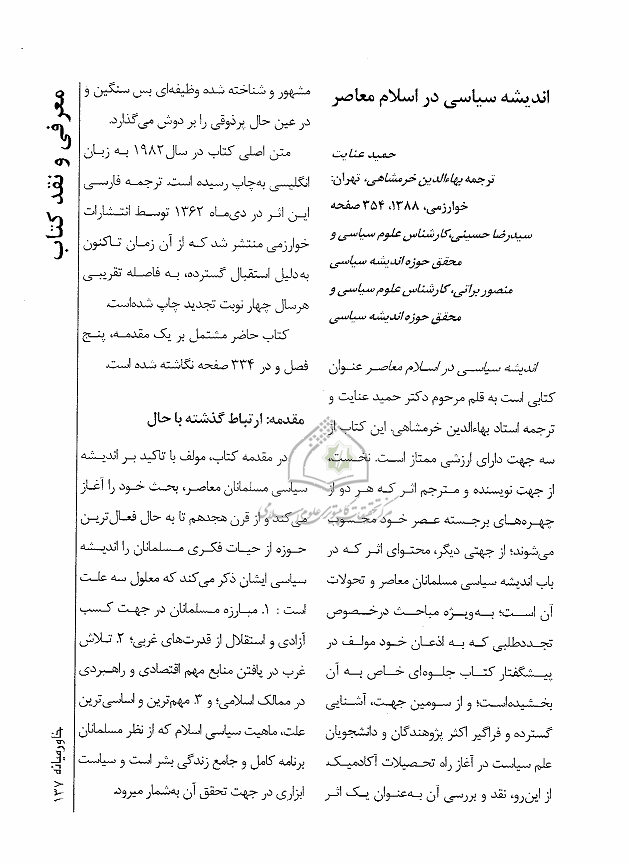 معرفی و نقد کتاب
اندیشه سیاسی در اسلام معاصر
حمید عنایت
ترجمه بهاءالدین خرمشاهی، تهران:
خوارزمی، ۱۳۸۸، ۳۵۴ صفحه
سیدرضا حسینی، کارشناس علوم سیاسی و
محقق حوزه اندیشه سیاسی
منصور براتی، کارشناس علوم سیاسی و
محقق حوزه اندیشه سیاسی
اندیشه سیاسی در اسلام معاصر عنوان
کتابی است به قلم مرحوم دکتر حمید عنایت و
ترجمه استاد بهاءالدین خرمشاهی. این کتاب از
سه جهت دارای ارزشی ممتاز است. نخست،
از جهت نویسنده و مترجم اثر که هر دو از
چهره‌های برجسته عصر خود محسوب
می‌شوند؛ از جهتی دیگر، محتوای اثر که در
باب اندیشه سیاسی مسلمانان معاصر و تحولات
آن است؛ به‌ویژه مباحث درخصوص
تجددطلبی که به اذعان خود مولف در
پیشگفتار کتاب جلوه‌ای خاص به آن
بخشیده‌است؛ و از سومین جهت، آشنایی
گسترده و فراگیر اکثر پژوهندگان و دانشجویان
علم سیاست در آغاز راه تحصیلات آکادمیک.
از این‌رو، نقد و بررسی آن به‌عنوان یک اثر
مشهور و شناخته شده وظیفه‌ای بس سنگین و
در عین حال پرذوقی را بر دوش می‌گذارد.
متن اصلی کتاب در سال ۱۹۸۲ به زبان
انگلیسی به‌چاپ رسیده است. ترجمه فارسی
این اثر در دی‌ماه ۱۳۶۲ توسط انتشارات
خوارزمی منتشر شد که از آن زمان تاکنون
به‌دلیل استقبال گسترده، به فاصله تقریبی
هرسال چهار نوبت تجدید چاپ شده‌است.
کتاب حاضر مشتمل بر یک مقدمه، پنج
فصل و در ۳۳۴ صفحه نگاشته شده است.
مقدمه: ارتباط گذشته با حال
در مقدمه کتاب، مولف با تاکید بر اندیشه
سیاسی مسلمانان معاصر، بحث خود را آغاز
می‌کند و از قرن هجدهم تا به حال فعال‌ترین
حوزه از حیات فکری مسلمانان را اندیشه
سیاسی ایشان ذکر می‌کند که معلول سه علت
است : ۱. مبارزه مسلمانان در جهت کسب
آزادی و استقلال از قدرت‌های غربی؛ ۲. تلاش
غرب در یافتن منابع مهم اقتصادی و راهبردی
در ممالک اسلامی؛ و ۳. مهم‌ترین و اساسی‌ترین
علت، ماهیت سیاسی اسلام که از نظر مسلمانان
برنامه کامل و جامع زندگی بشر است و سیاست
ابزاری در جهت تحقق آن به‌شمار میرود.
خاورمیانه ۱۳۷